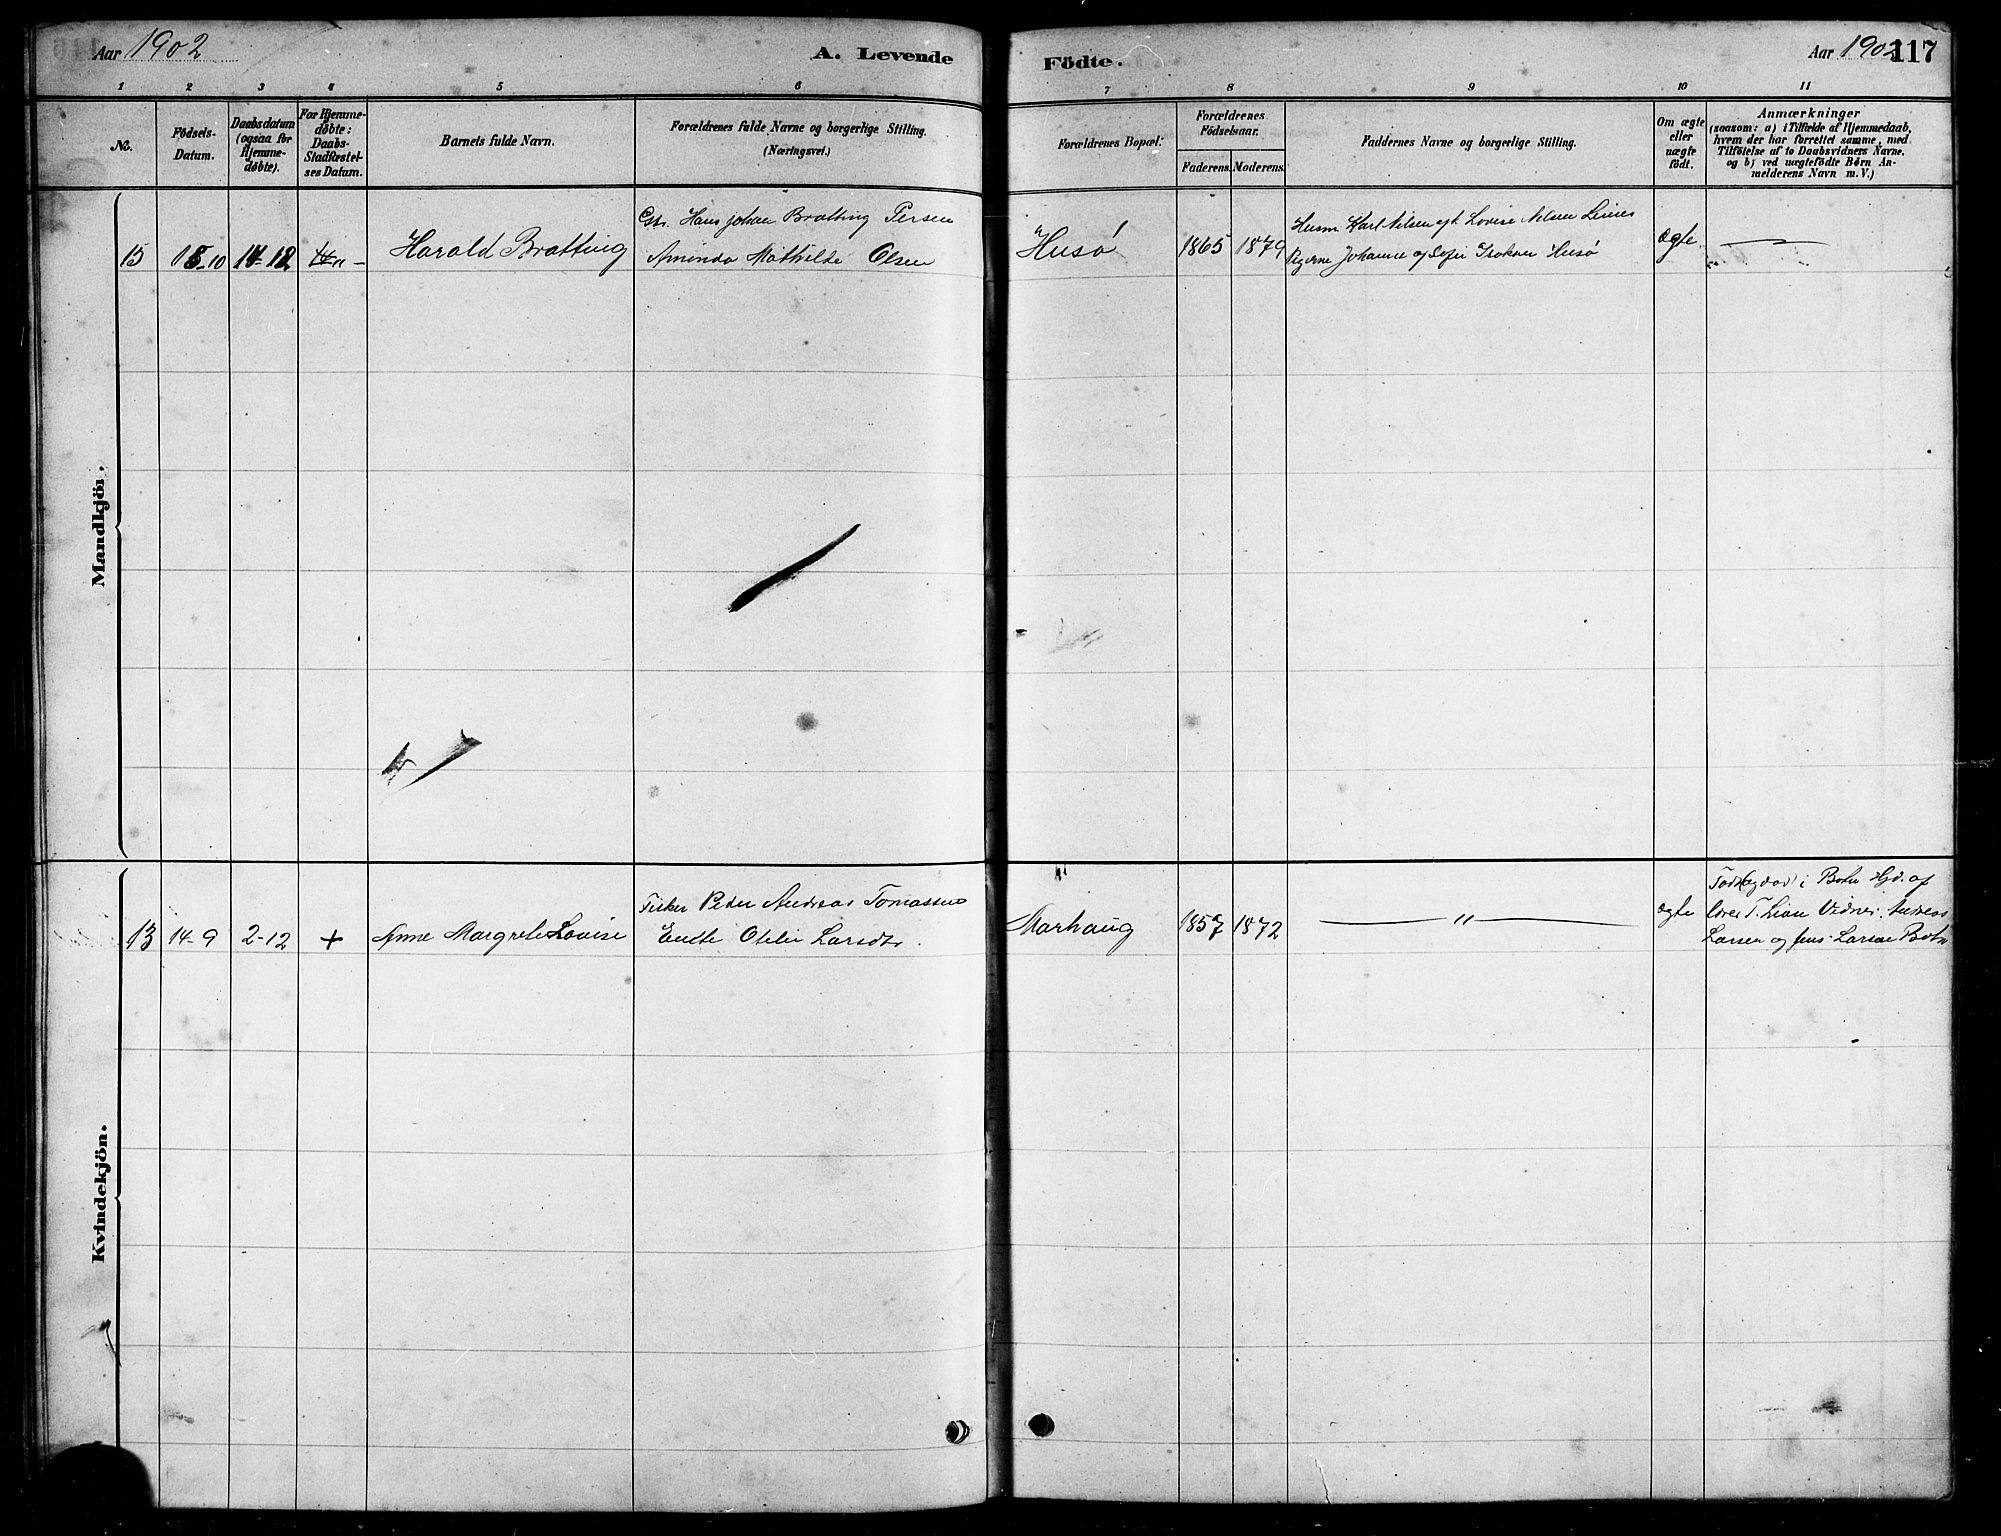 Aar 1902
A. Levende
Födte.
Aar 1902
117
1 2 3 4 5 6 7 8 9 10 11
No.
Födsels-
Datum.
Daabsdatum
(ogsaa for
Hjemme-
døbte).
For Hjemme-
døbte:
Daabs-
Stadfæstel-
ses Datum.
Barnets fulde Navn.
Forældrenes fulde Navne og borgerlige Stilling.
(Næringsvei.)
Forældrenes Bopæl.
Forældrenes
Födselsaar.
Faderens. Moderens.
Faddernes Navne og borgerlige Stilling.
Om ægte
eller
uægte
födt.
Anmærkninger
(saasom: a) i Tilfælde af Hjemmedaab,
hvem der har forrettet samme, med
Tilföielse af to Daabsvidners Navne.
og b) ved uægtefödte Börn An-
melderens Navn m. V.)
Mandkjön.
15
-10
-12
Harald Bratting
Hans Johan Bratting Persen
Aminda Mathilde Olsen
Husø
1865
1879
Husm Karl Nilsen og k Lovise Nilsen
Pigerne Johanne og Husø
ægte
Kvindekjön.
13
14-9
2-12
+
Anne Margrete Lovise
Fisker Peder Andreas Tomassen
Otelie Larsdtr.
Marhaug
1857
1872
"
ægte
i Botn Hjd. af
Andreas
Larsen og Jens Larsen Botn